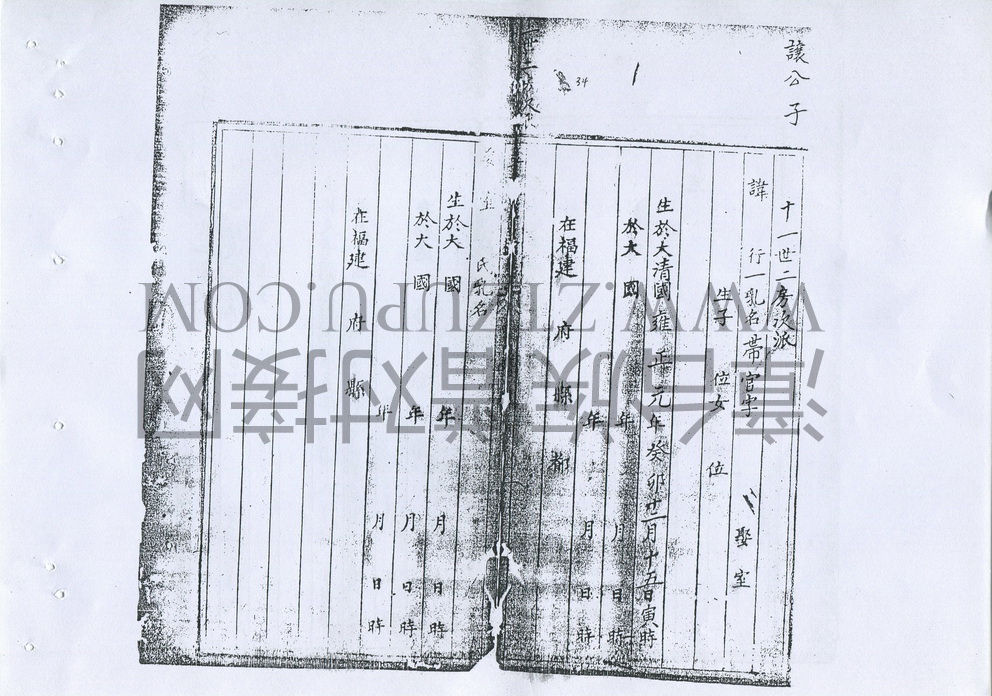 讓公子
十一世二房次派
諱 行一乳名帶官字 娶室
生子 位女 位
生於大清國雍正元年癸卯廿一月十五日寅時
於大 國 年 月 日 時
年 月 日 時
在福建 府 縣 都
34
氏乳名
生於大 國 年 月 日 時
於大 國 年 月 日 時
年 月 日 時
在福建 府 縣
WWW.ZTZUPU.COM
漳台族谱对接网